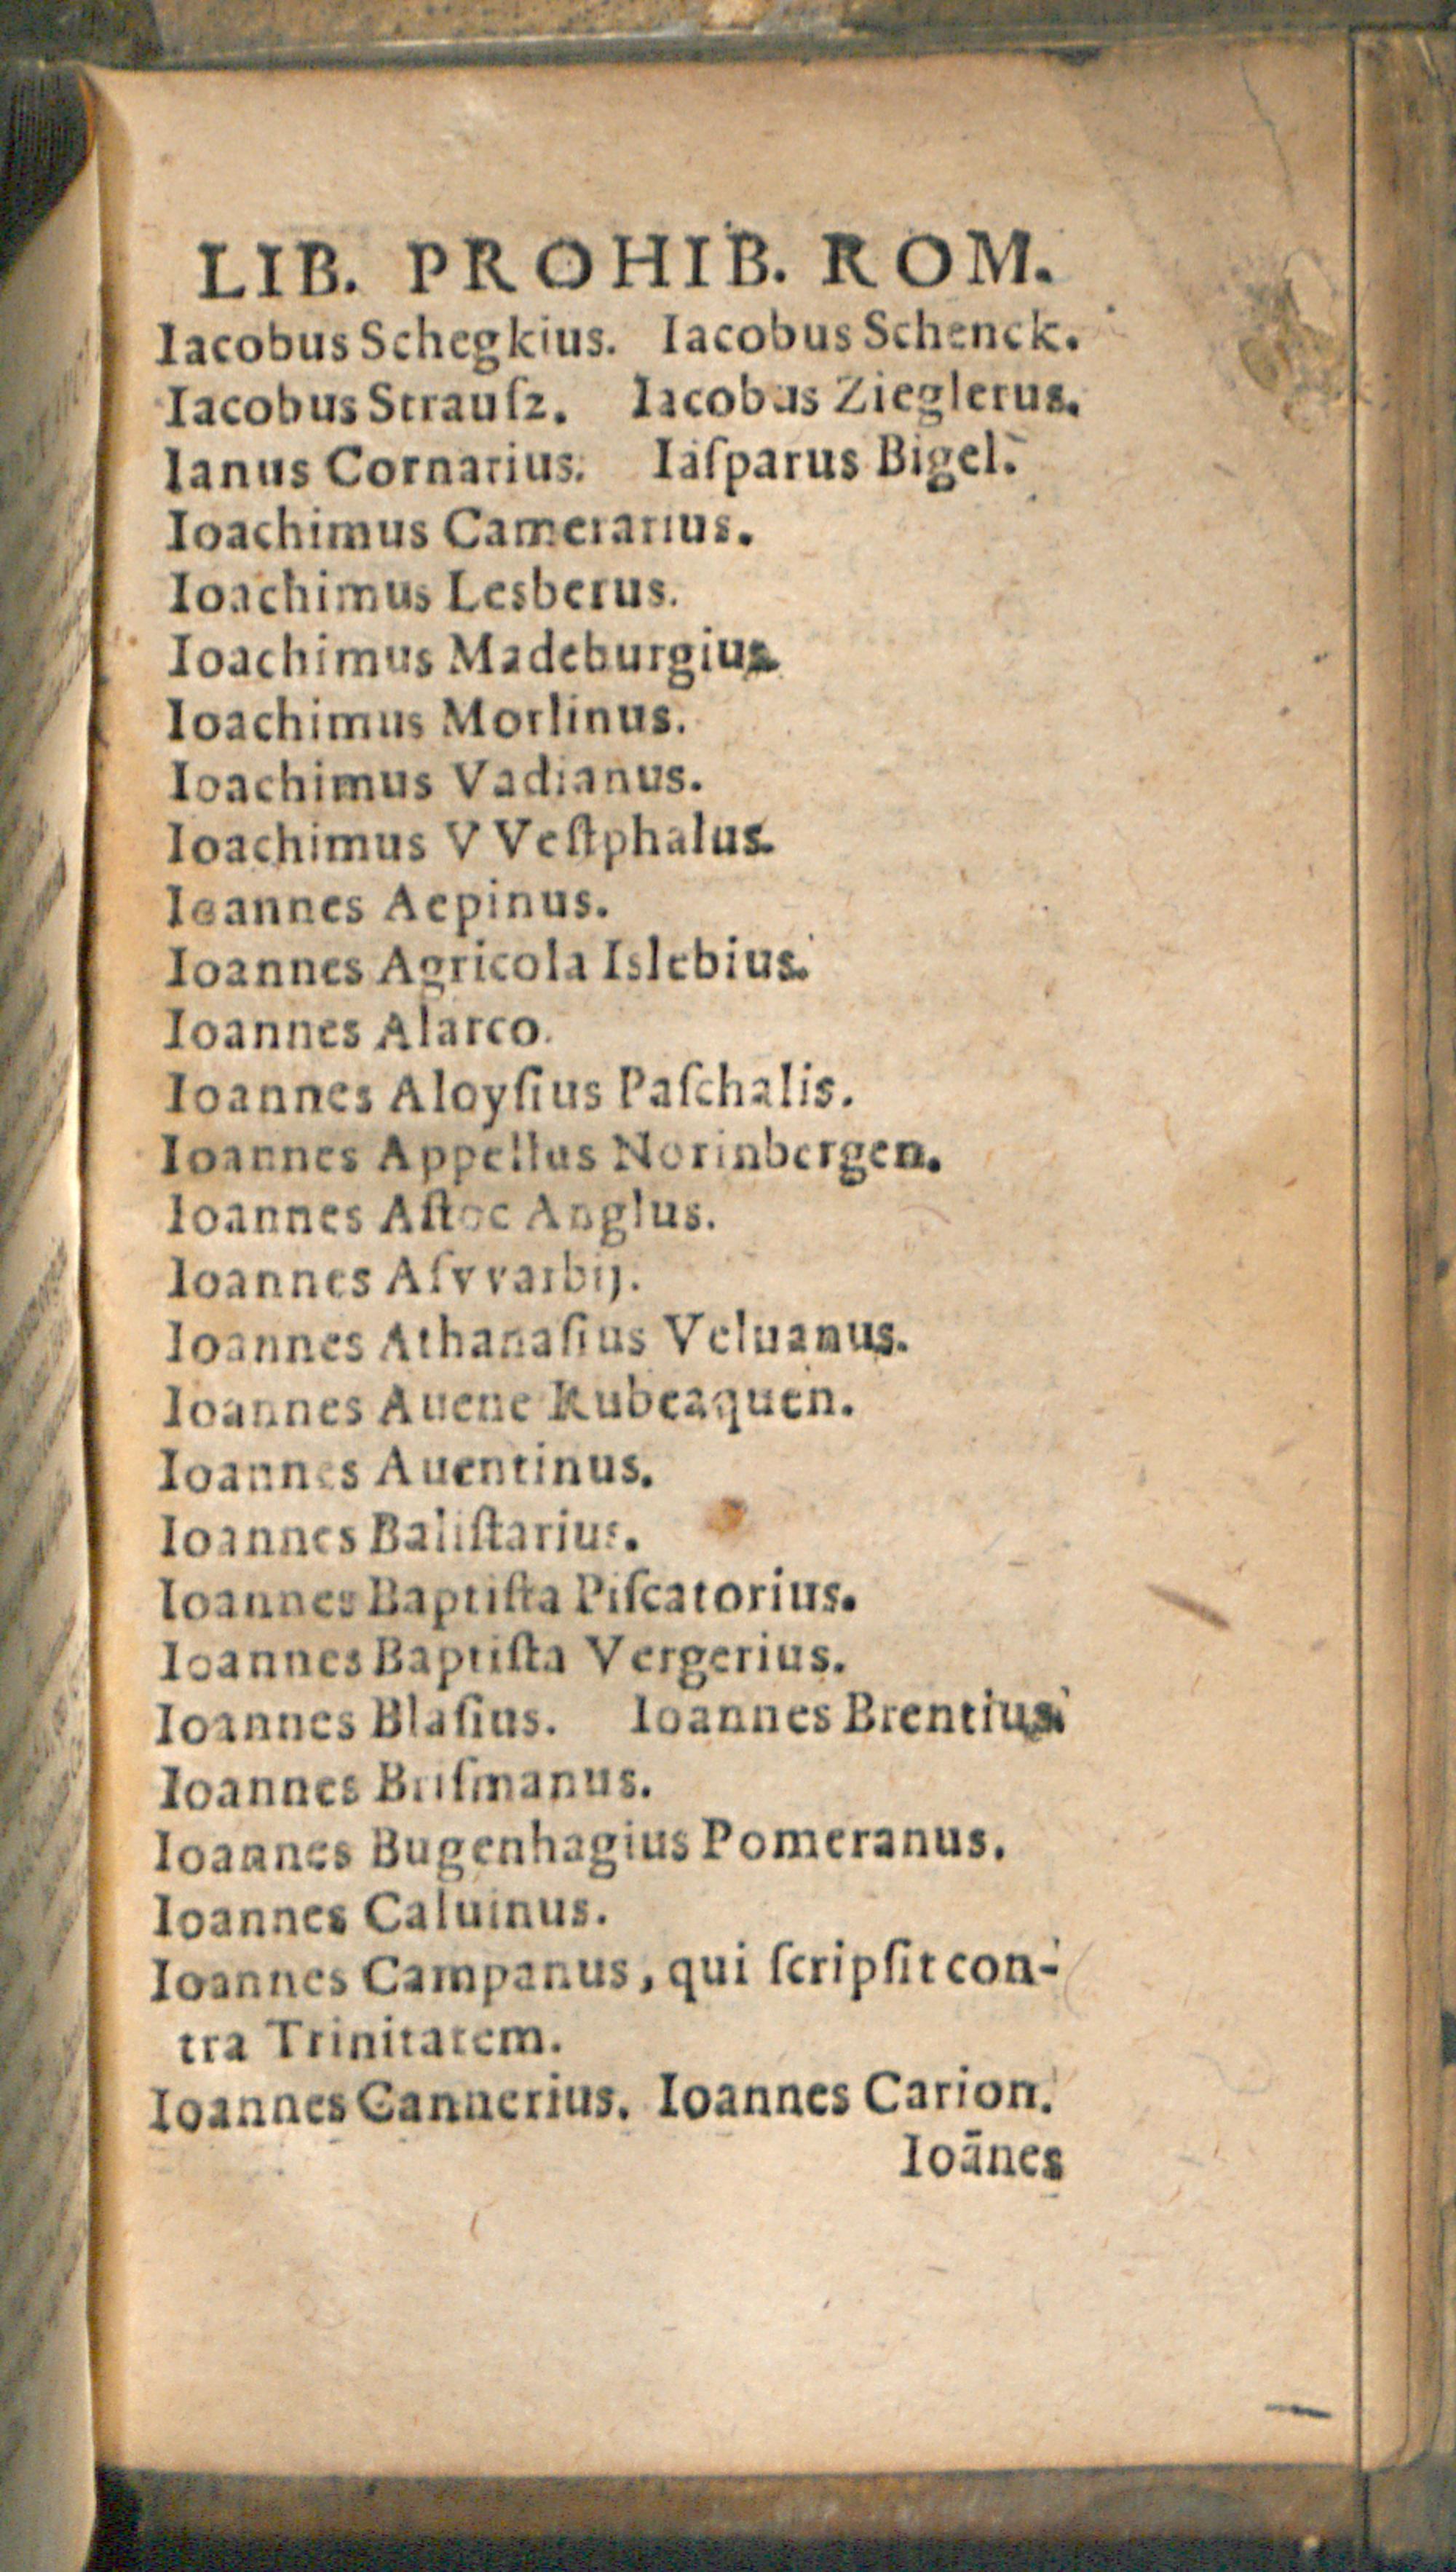 LIB. PROHIB. ROM.
Iacobus Schegkius. Iacobus Schenck.
Iacobus Strauſz. Iacobus Zieglerus.
Ianus Cornarius. Iaſparus Bigel.
Ioachimus Camerarius.
Ioachimus Lesberus.
Ioachimus Madeburgius
Ioachimus Morlinus.
Ioachimus Vadianus.
Ioachimus VVeſtphalus.
Ioannes Aepinus.
Ioannes Agricola Islebius.
Ioannes Alarco.
Ioannes Aloyſius Paſchalis.
Ioannes Appellus Norinbergen.
Ioannes Aſtoc Anglus.
Ioannes Aſvvarbij.
Ioannes Athanaſius Veluanus.
Ioannes Auene Rubeaquen.
Ioannes Auentinus.
Ioannes Baliſtarius.
Ioannes Baptiſta Piſcatorius.
Ioannes Baptiſta Vergerius.
Ioannes Blaſius. Ioannes Brentius.
Ioannes Briſmanus.
Ioannes Bugenhagius Pomeranus.
Ioannes Caluinus.
Ioannes Campanus, qui ſcripſit con-
tra Trinitatem.
Ioannes Cannerius. Ioannes Carion.
Ioānes